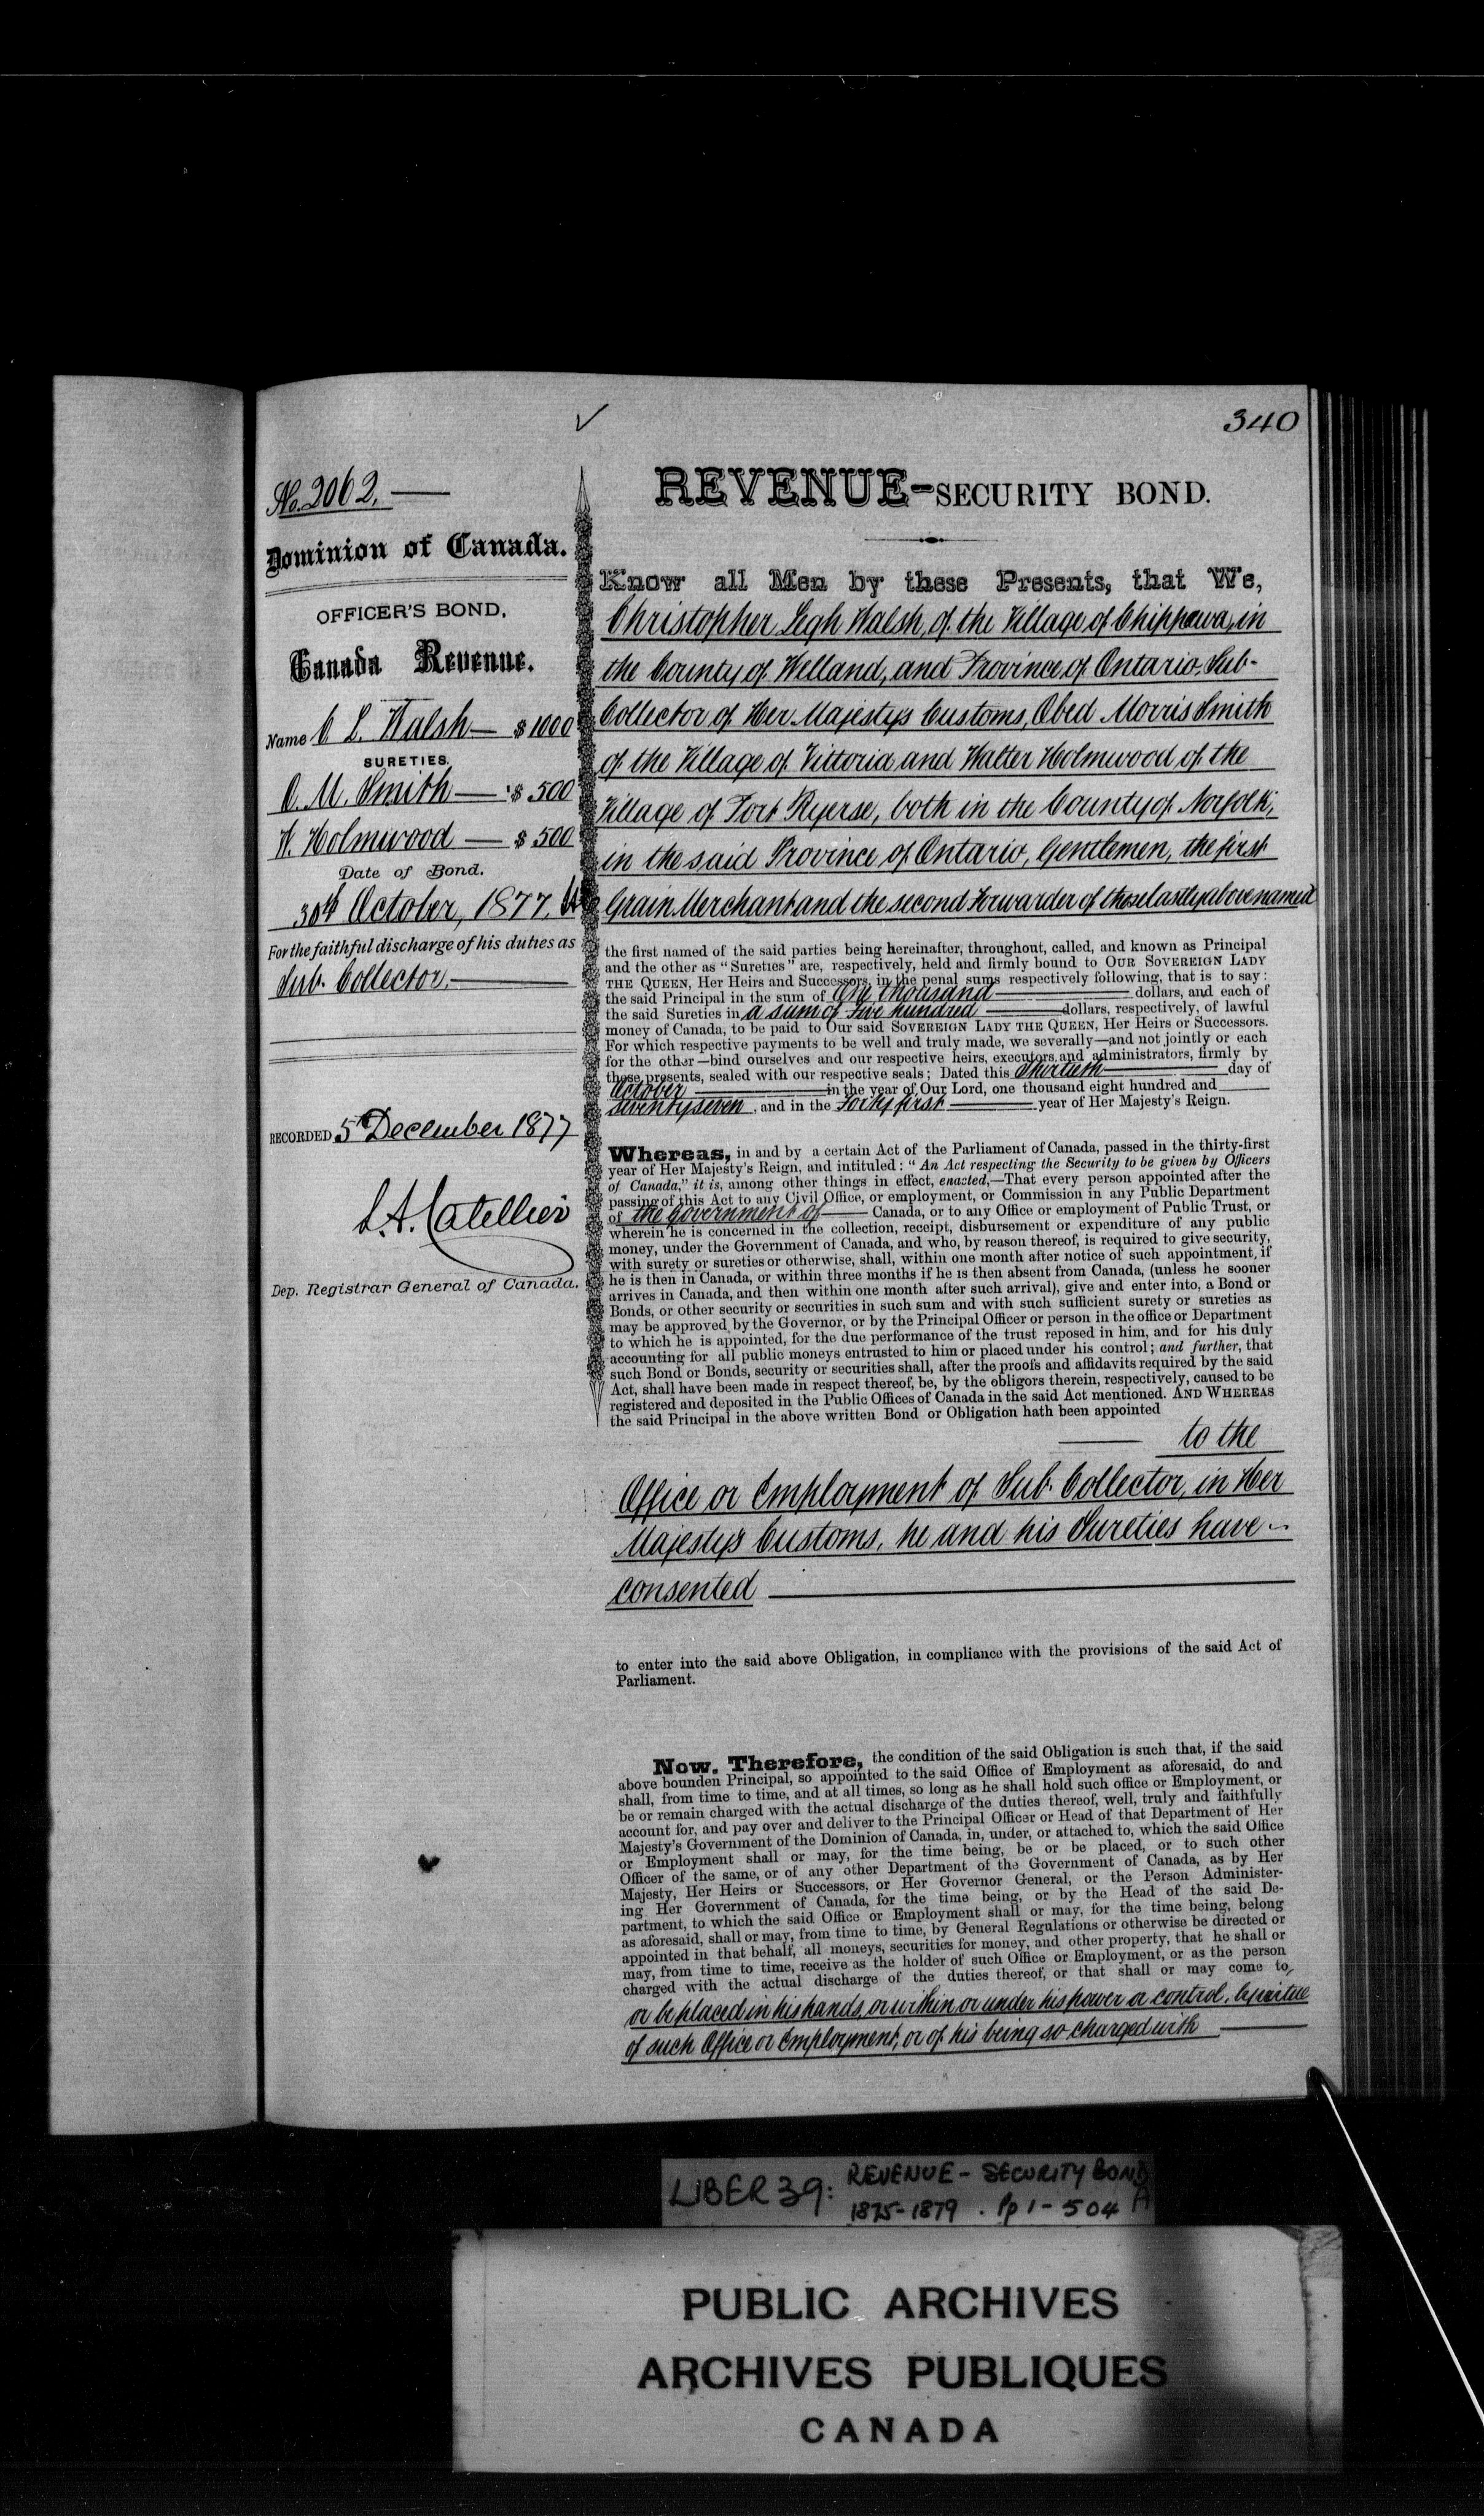 340
No. 2062.
Dominion of Canada.
OFFICER'S BOND,
Canada Revenue.
Name C L. Walsh — $ 1000
SURETIES.
O. M. Smith — $ 500
W. Holmwood — $ 500
Date of Bond.
30th October, 1877.
For the faithful discharge of his duties as
Sub. Collector.
RECORDED 5th December 1877
L. A. Catellier
Dep. Registrar General of Canada.
REVENUE-SECURITY BOND.
Know all Men by these Presents, that We,
Christopher Legh Walsh, of the Village of Chippawa, in
the County of Welland, and Province of Ontario, Sub-
Collector of Her Majestys Customs, Obed Morris Smith
of the Village of Vittoria and Walter Holmwood of the
Village of Port Ryerse, both in the County of Norfolk,
in the said Province of Ontario, Gentlemen, the first
Grain Merchant and the second Forwarder of those lastly above named
the first named of the said parties being hereinafter, throughout, called, and known as Principal
and the other as "Sureties" are, respectively, held and firmly bound to OUR SOVEREIGN LADY
THE QUEEN, Her Heirs and Successors, in the penal sums respectively following, that is to say:
the said Principal in the sum of One thousand dollars, and each of
the said Sureties in a sum of Five hundred dollars, respectively, of lawful
money of Canada, to be paid to Our said SOVEREIGN LADY THE QUEEN, Her Heirs or Successors.
For which respective payments to be well and truly made, we severally—and not jointly or each
for the other—bind ourselves and our respective heirs, executors and administrators, firmly by
these presents, sealed with our respective seals; Dated this Thirtieth day of
October in the year of Our Lord, one thousand eight hundred and
seventyseven, and in the Forty first year of Her Majesty's Reign.
Whereas, in and by a certain Act of the Parliament of Canada, passed in the thirty-first
year of Her Majesty's Reign, and intituled: "An Act respecting the Security to be given by Officers
of Canada," it is, among other things in effect, enacted,—That every person appointed after the
passing of this Act to any Civil Office, or employment, or Commission in any Public Department
of the Government of Canada, or to any Office or employment of Public Trust, or
wherein he is concerned in the collection, receipt, disbursement or expenditure of any public
money, under the Government of Canada, and who, by reason thereof, is required to give security,
with surety or sureties or otherwise, shall, within one month after notice of such appointment, if
he is then in Canada, or within three months if he is then absent from Canada, (unless he sooner
arrives in Canada, and then within one month after such arrival), give and enter into, a Bond or
Bonds, or other security or securities in such sum and with such sufficient surety or sureties as
may be approved by the Governor, or by the Principal Officer or person in the office or Department
to which he is appointed, for the due performance of the trust reposed in him, and for his duly
accounting for all public moneys entrusted to him or placed under his control; and further, that
such Bond or Bonds, security or securities shall, after the proofs and affidavits required by the said
Act, shall have been made in respect thereof, be, by the obligors therein, respectively, caused to be
registered and deposited in the Public Offices of Canada in the said Act mentioned. AND WHEREAS
the said Principal in the above written Bond or Obligation hath been appointed
to the
Office or Employment of Sub. Collector, in Her
Majestys Customs, he and his Sureties have
consented
to enter into the said above Obligation, in compliance with the provisions of the said Act of
Parliament.
Now, Therefore, the condition of the said Obligation is such that, if the said
above bounden Principal, so appointed to the said Office of Employment as aforesaid, do and
shall, from time to time, and at all times, so long as he shall hold such office or Employment, or
be or remain charged with the actual discharge of the duties thereof, well, truly and faithfully
account for, and pay over and deliver to the Principal Officer or Head of that Department of Her
Majesty's Government of the Dominion of Canada, in, under, or attached to, which the said Office
or Employment shall or may, for the time being, be or be placed, or to such other
Officer of the same, or of any other Department of the Government of Canada, as by Her
Majesty, Her Heirs or Successors, or Her Governor General, or the Person Administer-
ing Her Government of Canada, for the time being, or by the Head of the said De-
partment, to which the said Office or Employment shall or may, for the time being, belong
as aforesaid, shall or may, from time to time, by General Regulations or otherwise be directed or
appointed in that behalf, all moneys, securities for money, and other property, that he shall or
may, from time to time, receive as the holder of such Office or Employment, or as the person
charged with the actual discharge of the duties thereof, or that shall or may come to,
or be placed in his hands, or within or under his power or control, by virtue
of such Office or Employment, or of his being so charged with
LIBER 39: REVENUE - SECURITY BOND A
1875-1879. Pp 1-504
PUBLIC ARCHIVES
ARCHIVES PUBLIQUES
CANADA